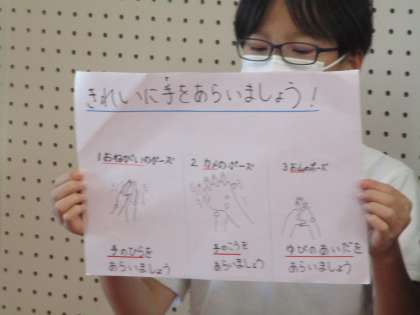 きれいに手をあらいましょう!
1 おねがいのポーズ
2 カメのポーズ
3 お山のポーズ
手のひらを
あらいましょう
手のこうを
あらいましょう
ゆびのあいだを
あらいましょう